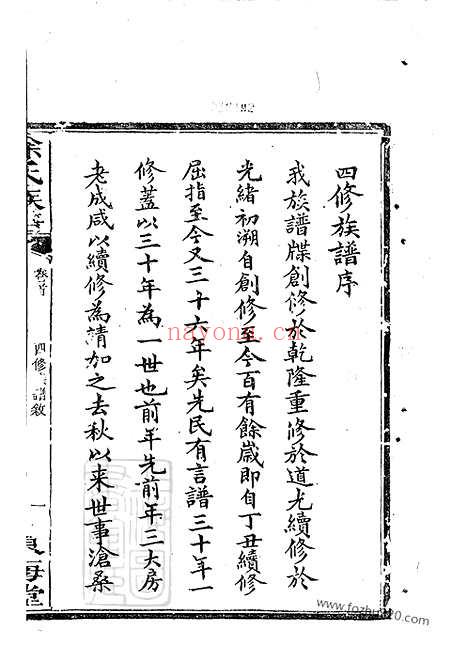 四修族譜序
我族譜牒創修於乾隆重修於道光續修於
光緒初溯自創修至今百有餘歲即自丁丑續修
屈指至今又三十六年矣先民有言譜三十年一
修蓋以三十年為一世也前年先前年三大房
老成咸以續修為請加之去秋以来世事滄桑
余氏族譜
卷首
四修 譜敘
一
良海堂
nayona.cn
www.fozhu920.com